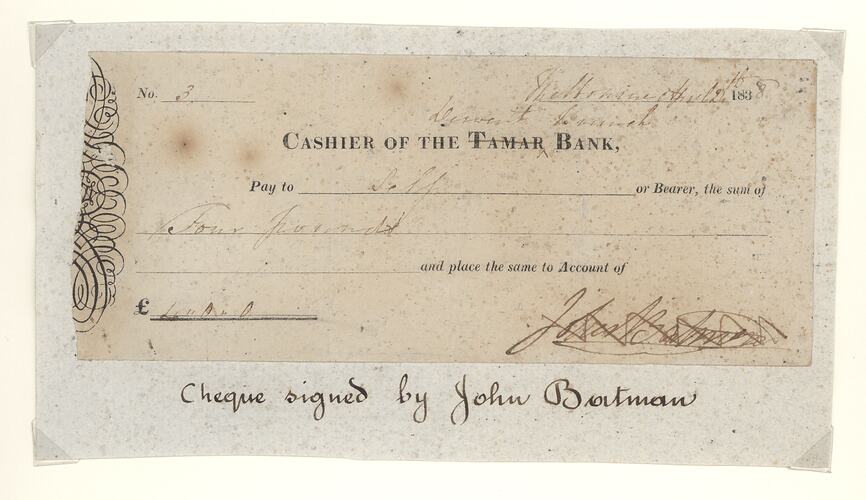 No. 3 Melbourne April 2 1838
Derwent Branch
CASHIER OF THE TAMAR BANK,
Pay to Self or Bearer, the sum of
Four pounds
and place the same to Account of
£ 4 " 0 " 0
John Batman
Cheque signed by John Batman